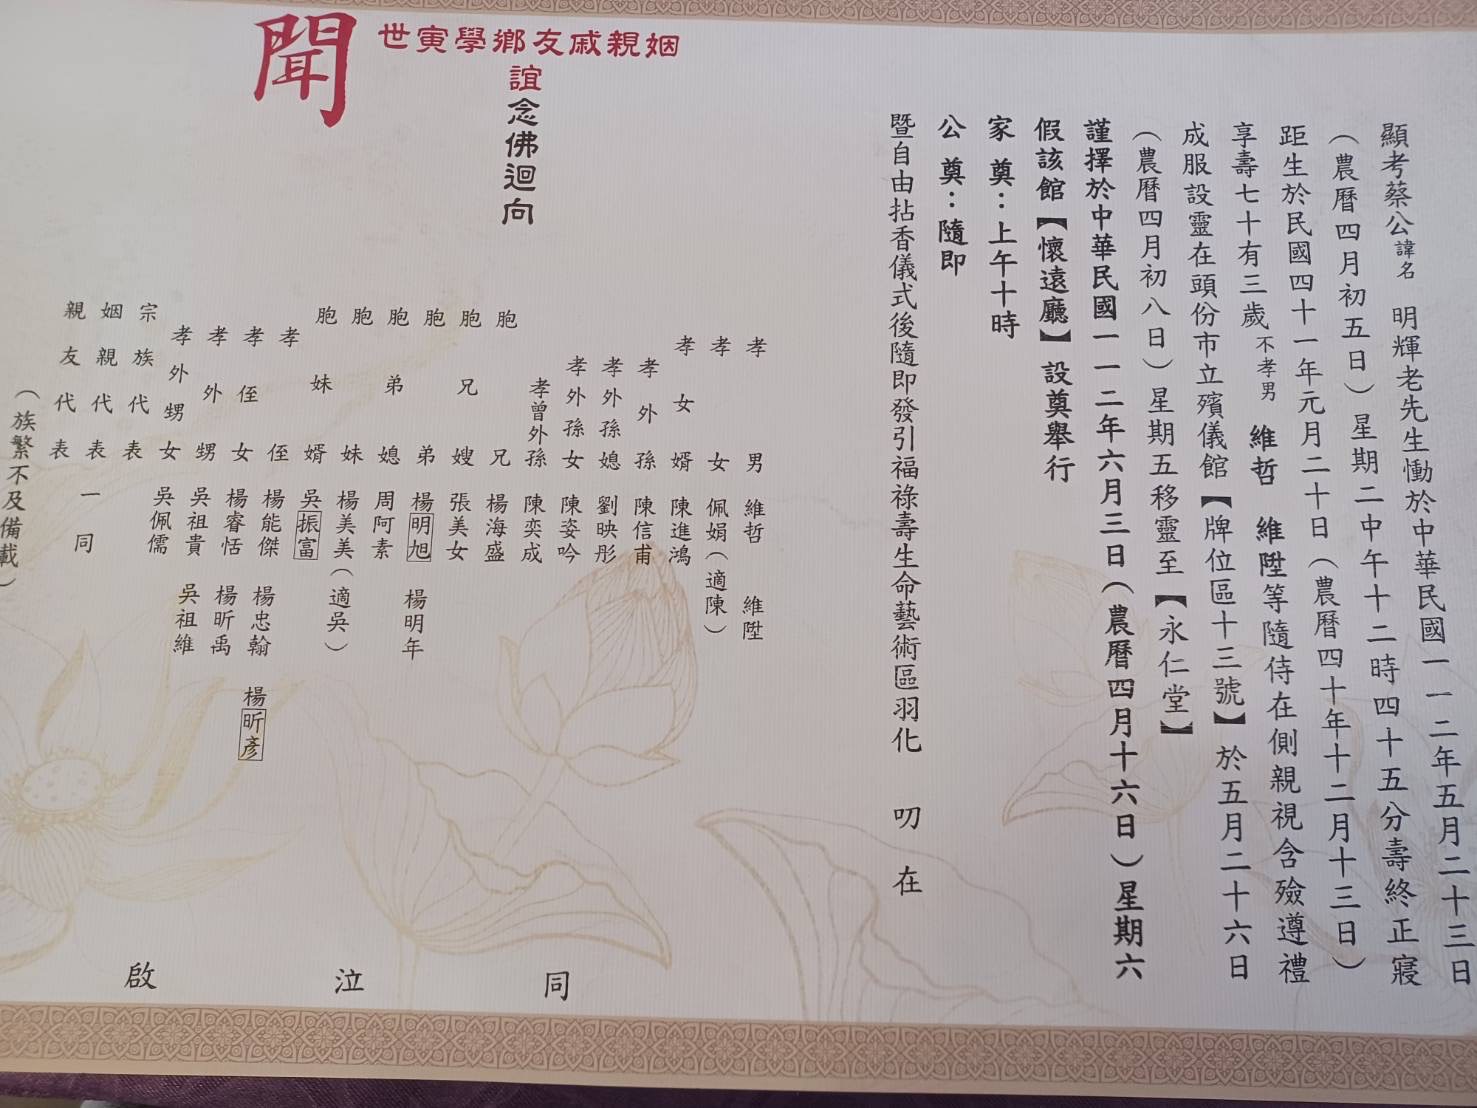 顯考蔡公諱名 明輝老先生慟於中華民國一一二年五月二十三日
(農曆四月初五日)星期二中午十二時四十五分壽終正寢
距生於民國四十一年元月二十日(農曆四十年十二月十三日)
享壽七十有三歲不孝男 維哲 維陞等隨侍在側親視含殮遵禮
成服設靈在頭份市立殯儀館【牌位區十三號】於五月二十六日
(農曆四月初八日)星期五移靈至【永仁堂】
謹擇於中華民國一一二年六月三日(農曆四月十六日)星期六
假該館【懷遠廳】設奠舉行
家奠:上午十時
公奠:隨即
暨自由拈香儀式後隨即發引福祿壽生命藝術區羽化 叨在
姻親戚友鄉學寅世
誼念佛迴向
聞
孝男 維哲 維陞
孝女 佩娟(適陳)
孝女婿 陳進鴻
孝外孫 陳信甫
孝外孫媳 劉映彤
孝外孫女 陳姿吟
孝曾外孫 陳奕成
胞兄 楊海盛
胞兄嫂 張美女
胞弟 楊明旭 楊明年
胞弟媳 周阿素
胞妹 楊美美(適吳)
胞妹婿 吳振富
孝侄 楊能傑 楊忠翰 楊昕彥
孝侄女 楊睿恬 楊昕禹
孝外甥 吳祖貴 吳祖維
孝外甥女 吳佩儒
宗族代表
姻親代表 一同
親友代表
(族繁不及備載)
同泣啟